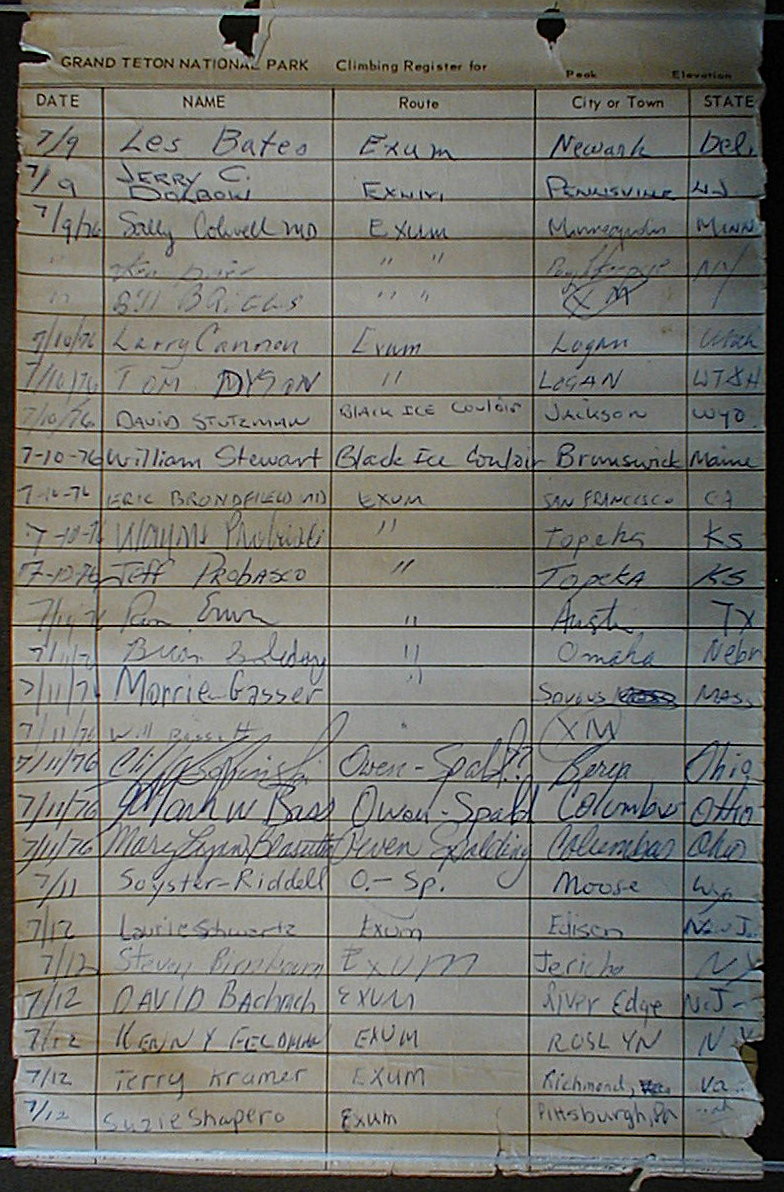 GRAND TETON NATIONAL PARK Climbing Register for
Peak Elevation
DATE NAME Route City or Town STATE
7/9 Les Bates Exum Newark Del.
7/9 JERRY C. DOLBOW EXUM PENNSVILLE N.J.
7/9/76 Sally Colwell MD Exum Minneapolis MINN
" " " NY
" Bill BRIGGS " " XM
7/10/76 Larry Cannon Exum Logan Utah
7/10/76 TOM DYSON " LOGAN UTAH
7/10/76 DAVID STUTZMAN BLACK ICE COULOIR JACKSON WYO.
7-10-76 William Stewart Black Ice Couloir Brunswick Maine
7-10-76 ERIC BRONDFIELD MD EXUM SAN FRANCISCO CA
7-10-76 " Topeka KS
7-10-76 Jeff PROBASCO " TopeKA KS
" Austin, TX
7/11/76 Brian " Omaha Nebr
7/11/76 Morrie Gasser " MASS.
7/11/76 Will Bassett " XM
7/11/76 Owen-Spald?? Berea Ohio
7/11/76 Mark W Bass Owen-Spald Columbus OHIO
7/11/76 Mary Lynn Owen Spalding Columbus Ohio
7/11 Soyster-Riddell O.-Sp. Moose Wyo
7/12 Laurie Schwartz Exum Edison New J.
7/12 Steven Birnbaum EXUM Jericho NY
7/12 DAVID BAchrach EXUM River Edge N.J.
7/12 KENNY FELDMAN EXUM ROSLYN NY
7/12 Terry Kramer EXUM Richmond, Va.
7/12 Suzie Shapero Exum Pittsburgh, PA